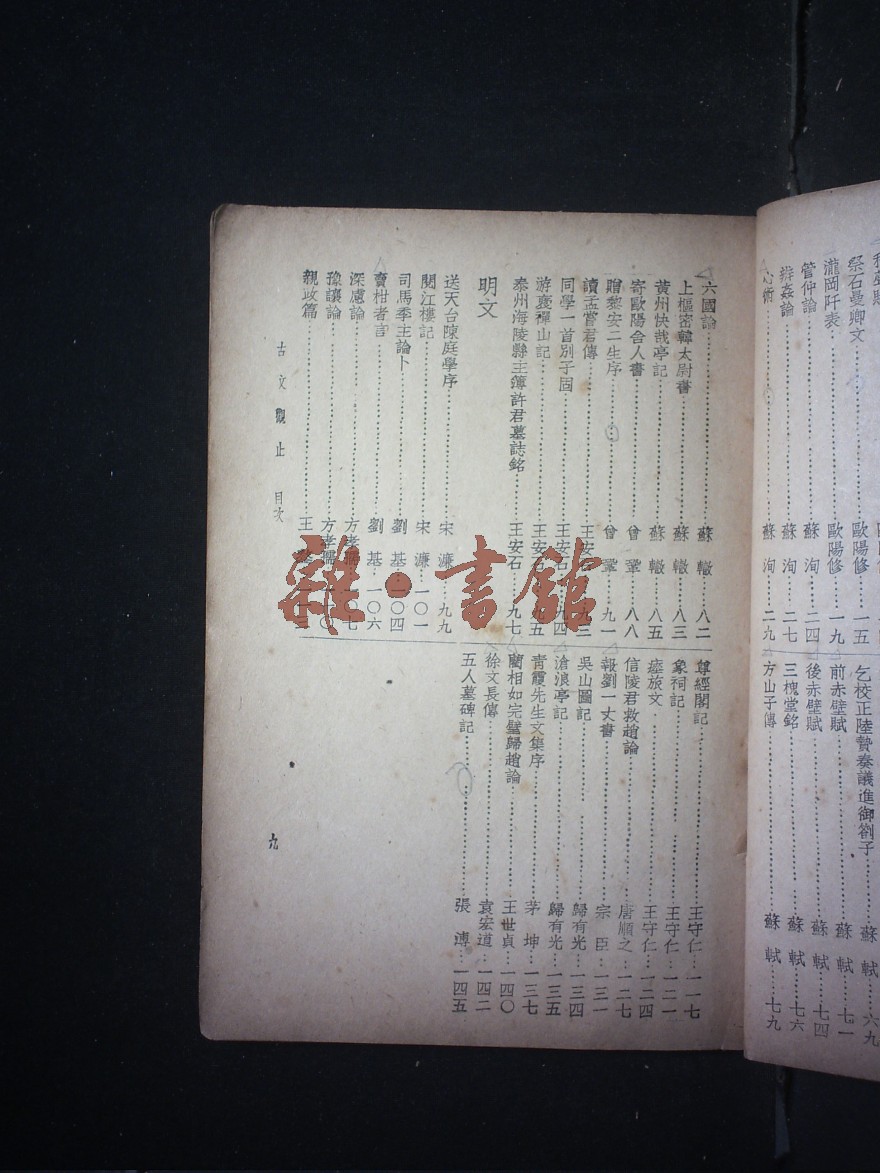 祭石曼卿文 歐陽修 一五
瀧岡阡表 歐陽修 一九
管仲論 蘇洵 二四
辨姦論 蘇洵 二七
心術 蘇洵 二九
乞校正陸贄奏議進御劄子 蘇軾 六九
前赤壁賦 蘇軾 七一
後赤壁賦 蘇軾 七四
三槐堂銘 蘇軾 七六
方山子傳 蘇軾 七九
六國論 蘇轍 八二
上樞密韓太尉書 蘇轍 八三
黃州快哉亭記 蘇轍 八五
寄歐陽舍人書 曾鞏 八八
贈黎安二生序 曾鞏 九一
讀孟嘗君傳 王安石 九三
同學一首別子固 王安石 九四
游褒禪山記 王安石 九五
泰州海陵縣主簿許君墓誌銘 王安石 九七
明文
送天台陳庭學序 宋濂 九九
閱江樓記 宋濂 一〇一
司馬季主論卜 劉基 一〇四
賣柑者言 劉基 一〇六
深慮論 方孝孺 一〇七
豫讓論 方孝孺
親政篇 王
尊經閣記 王守仁 一一七
象祠記 王守仁 一二一
瘞旅文 王守仁 一二四
信陵君救趙論 唐順之 一二七
報劉一丈書 宗臣 一三一
吳山圖記 歸有光 一三四
滄浪亭記 歸有光 一三五
青霞先生文集序 茅坤 一三七
藺相如完璧歸趙論 王世貞 一四〇
徐文長傳 袁宏道 一四二
五人墓碑記 張溥 一四五
古文觀止 目次
九
雜·書館